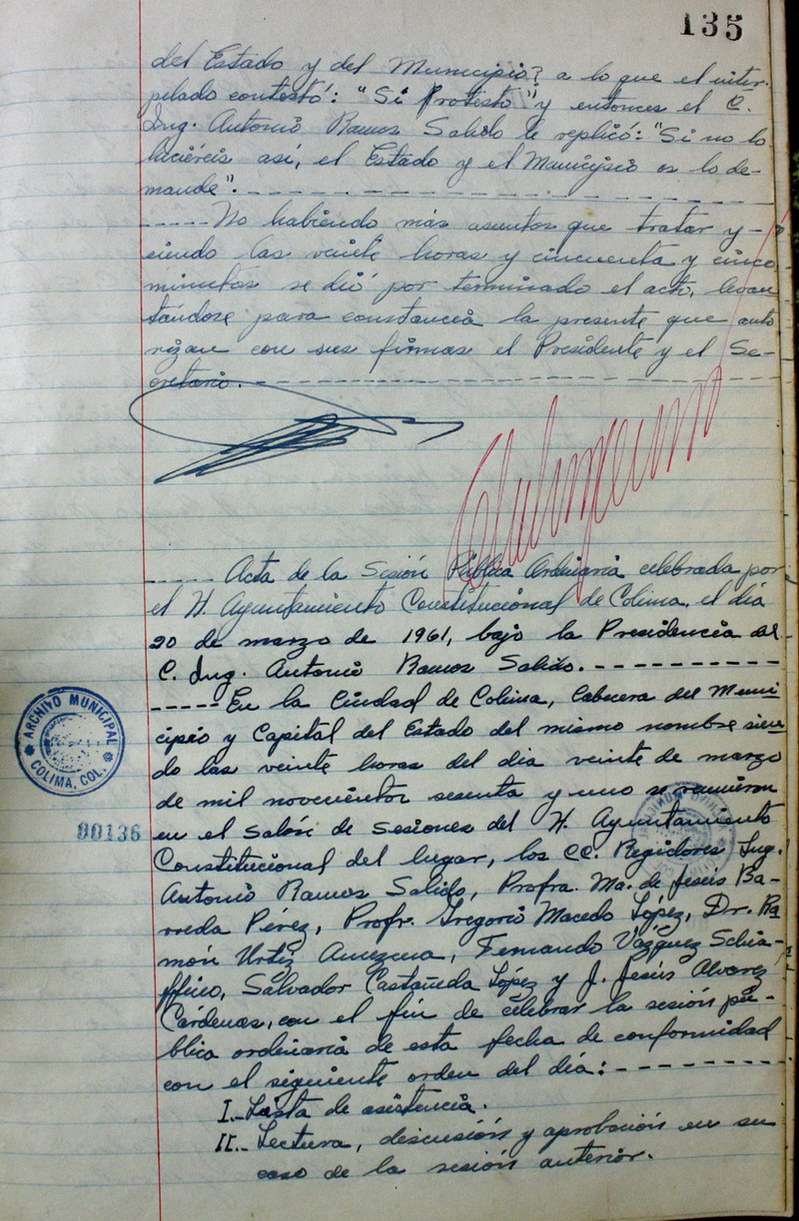 135
del Estado y del Municipio? a lo que el inter-
pelado contestó: "Si Protesto" y entonces el C.
Ing. Antonio Ramos Salido le replicó: "Si no lo
hiciéreis así, el Estado y el Municipio os lo de-
mande".
-----No habiendo más asuntos que tratar y-
siendo las veinte horas y cincuenta y cinco
minutos se dió por terminado el acto, levan
tándose para constancia la presente que auto
rizan con sus firmas el Presidente y el Se-
cretario.
---- Acta de la Sesión Pública Ordinaria celebrada por
el H. Ayuntamiento Constitucional de Colima, el día
20 de marzo de 1961, bajo la Presidencia del
C. Ing. Antonio Ramos Salido.----------
-----En la Ciudad de Colima, Cabecera del Muni
cipio y Capital del Estado del mismo nombre sien
do las veinte horas del dia veinte de marzo
de mil novecientos sesenta y uno se reunieron
en el salón de sesiones del H. Ayuntamiento
Constitucional del lugar, los CC. Regidores Ing.
Antonio Ramos Salido, Profra. Ma. de Jesús Ba-
rreda Pérez, Profr. Gregorio Macedo López, Dr. Ra
món Urtiz Amezcua, Fernando Vázquez Schia-
ffino, Salvador Castañeda López y J. Jesús Alvarez
Cárdenas, con el fin de celebrar la sesión pú-
blica ordinaria de esta fecha de conformidad
con el siguiente orden del día:--------
I.- Lista de asistencia.
II.- Lectura, discusión y aprobación en su
caso de la sesión anterior.
ARCHIVO MUNICIPAL
COLIMA, COL.
00136